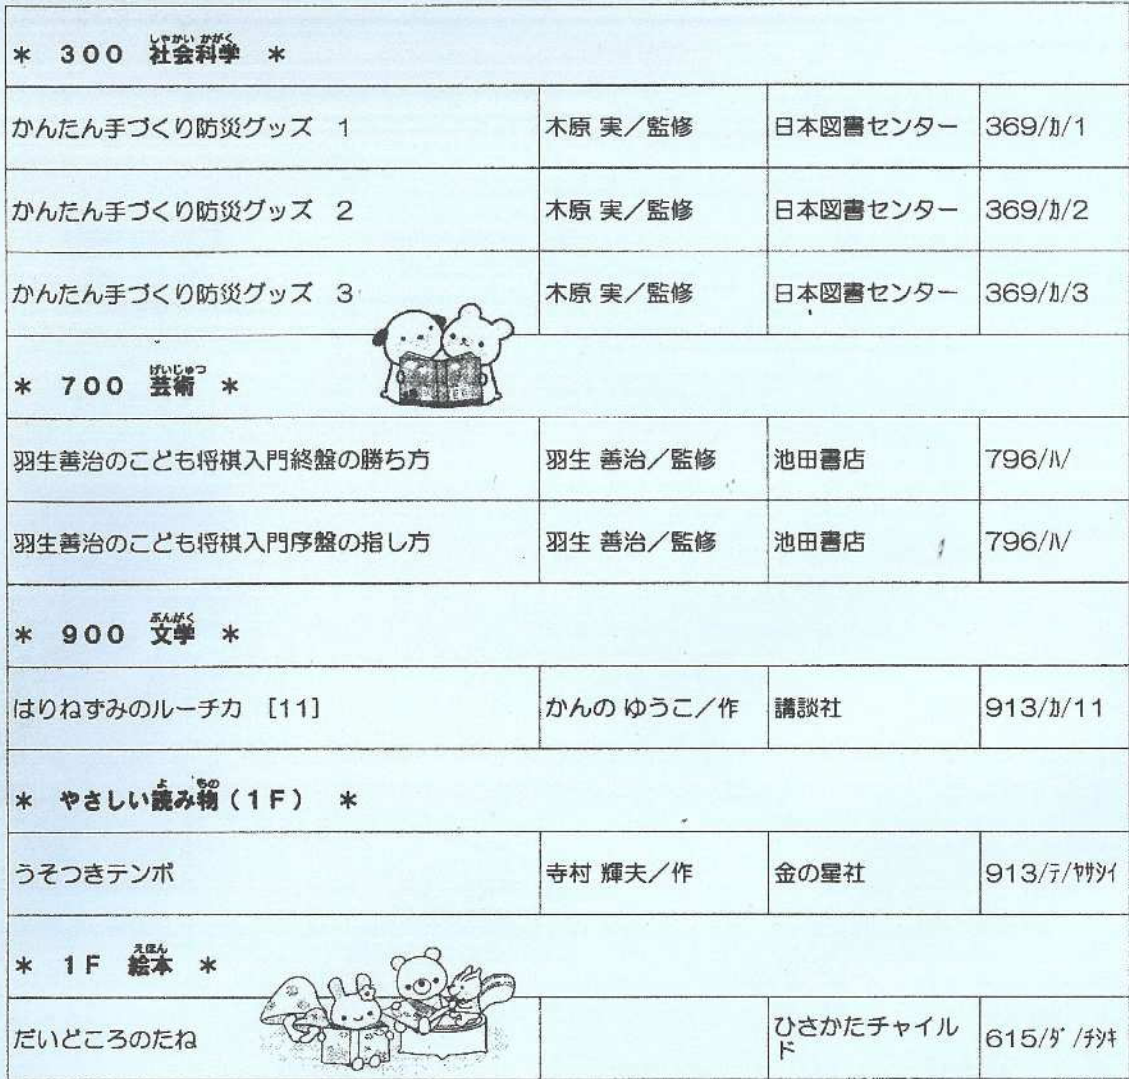 しゃかい かがく
* 300 社会科学 *
かんたん手づくり防災グッズ 1 木原 実／監修 日本図書センター 369/ｶ/1
かんたん手づくり防災グッズ 2 木原 実／監修 日本図書センター 369/ｶ/2
かんたん手づくり防災グッズ 3 木原 実／監修 日本図書センター 369/ｶ/3
げいじゅつ
* 700 芸術 *
羽生善治のこども将棋入門終盤の勝ち方 羽生 善治／監修 池田書店 796/ﾊ/
羽生善治のこども将棋入門序盤の指し方 羽生 善治／監修 池田書店 796/ﾊ/
ぶんがく
* 900 文学 *
はりねずみのルーチカ [11] かんの ゆうこ／作 講談社 913/ｶ/11
よ もの
* やさしい読み物(1F) *
うそつきテンボ 寺村 輝夫／作 金の星社 913/ﾃ/ﾔｻｼｲ
えほん
* 1F 絵本 *
だいどころのたね ひさかたチャイルド 615/ﾀﾞ/ﾁｼｷ